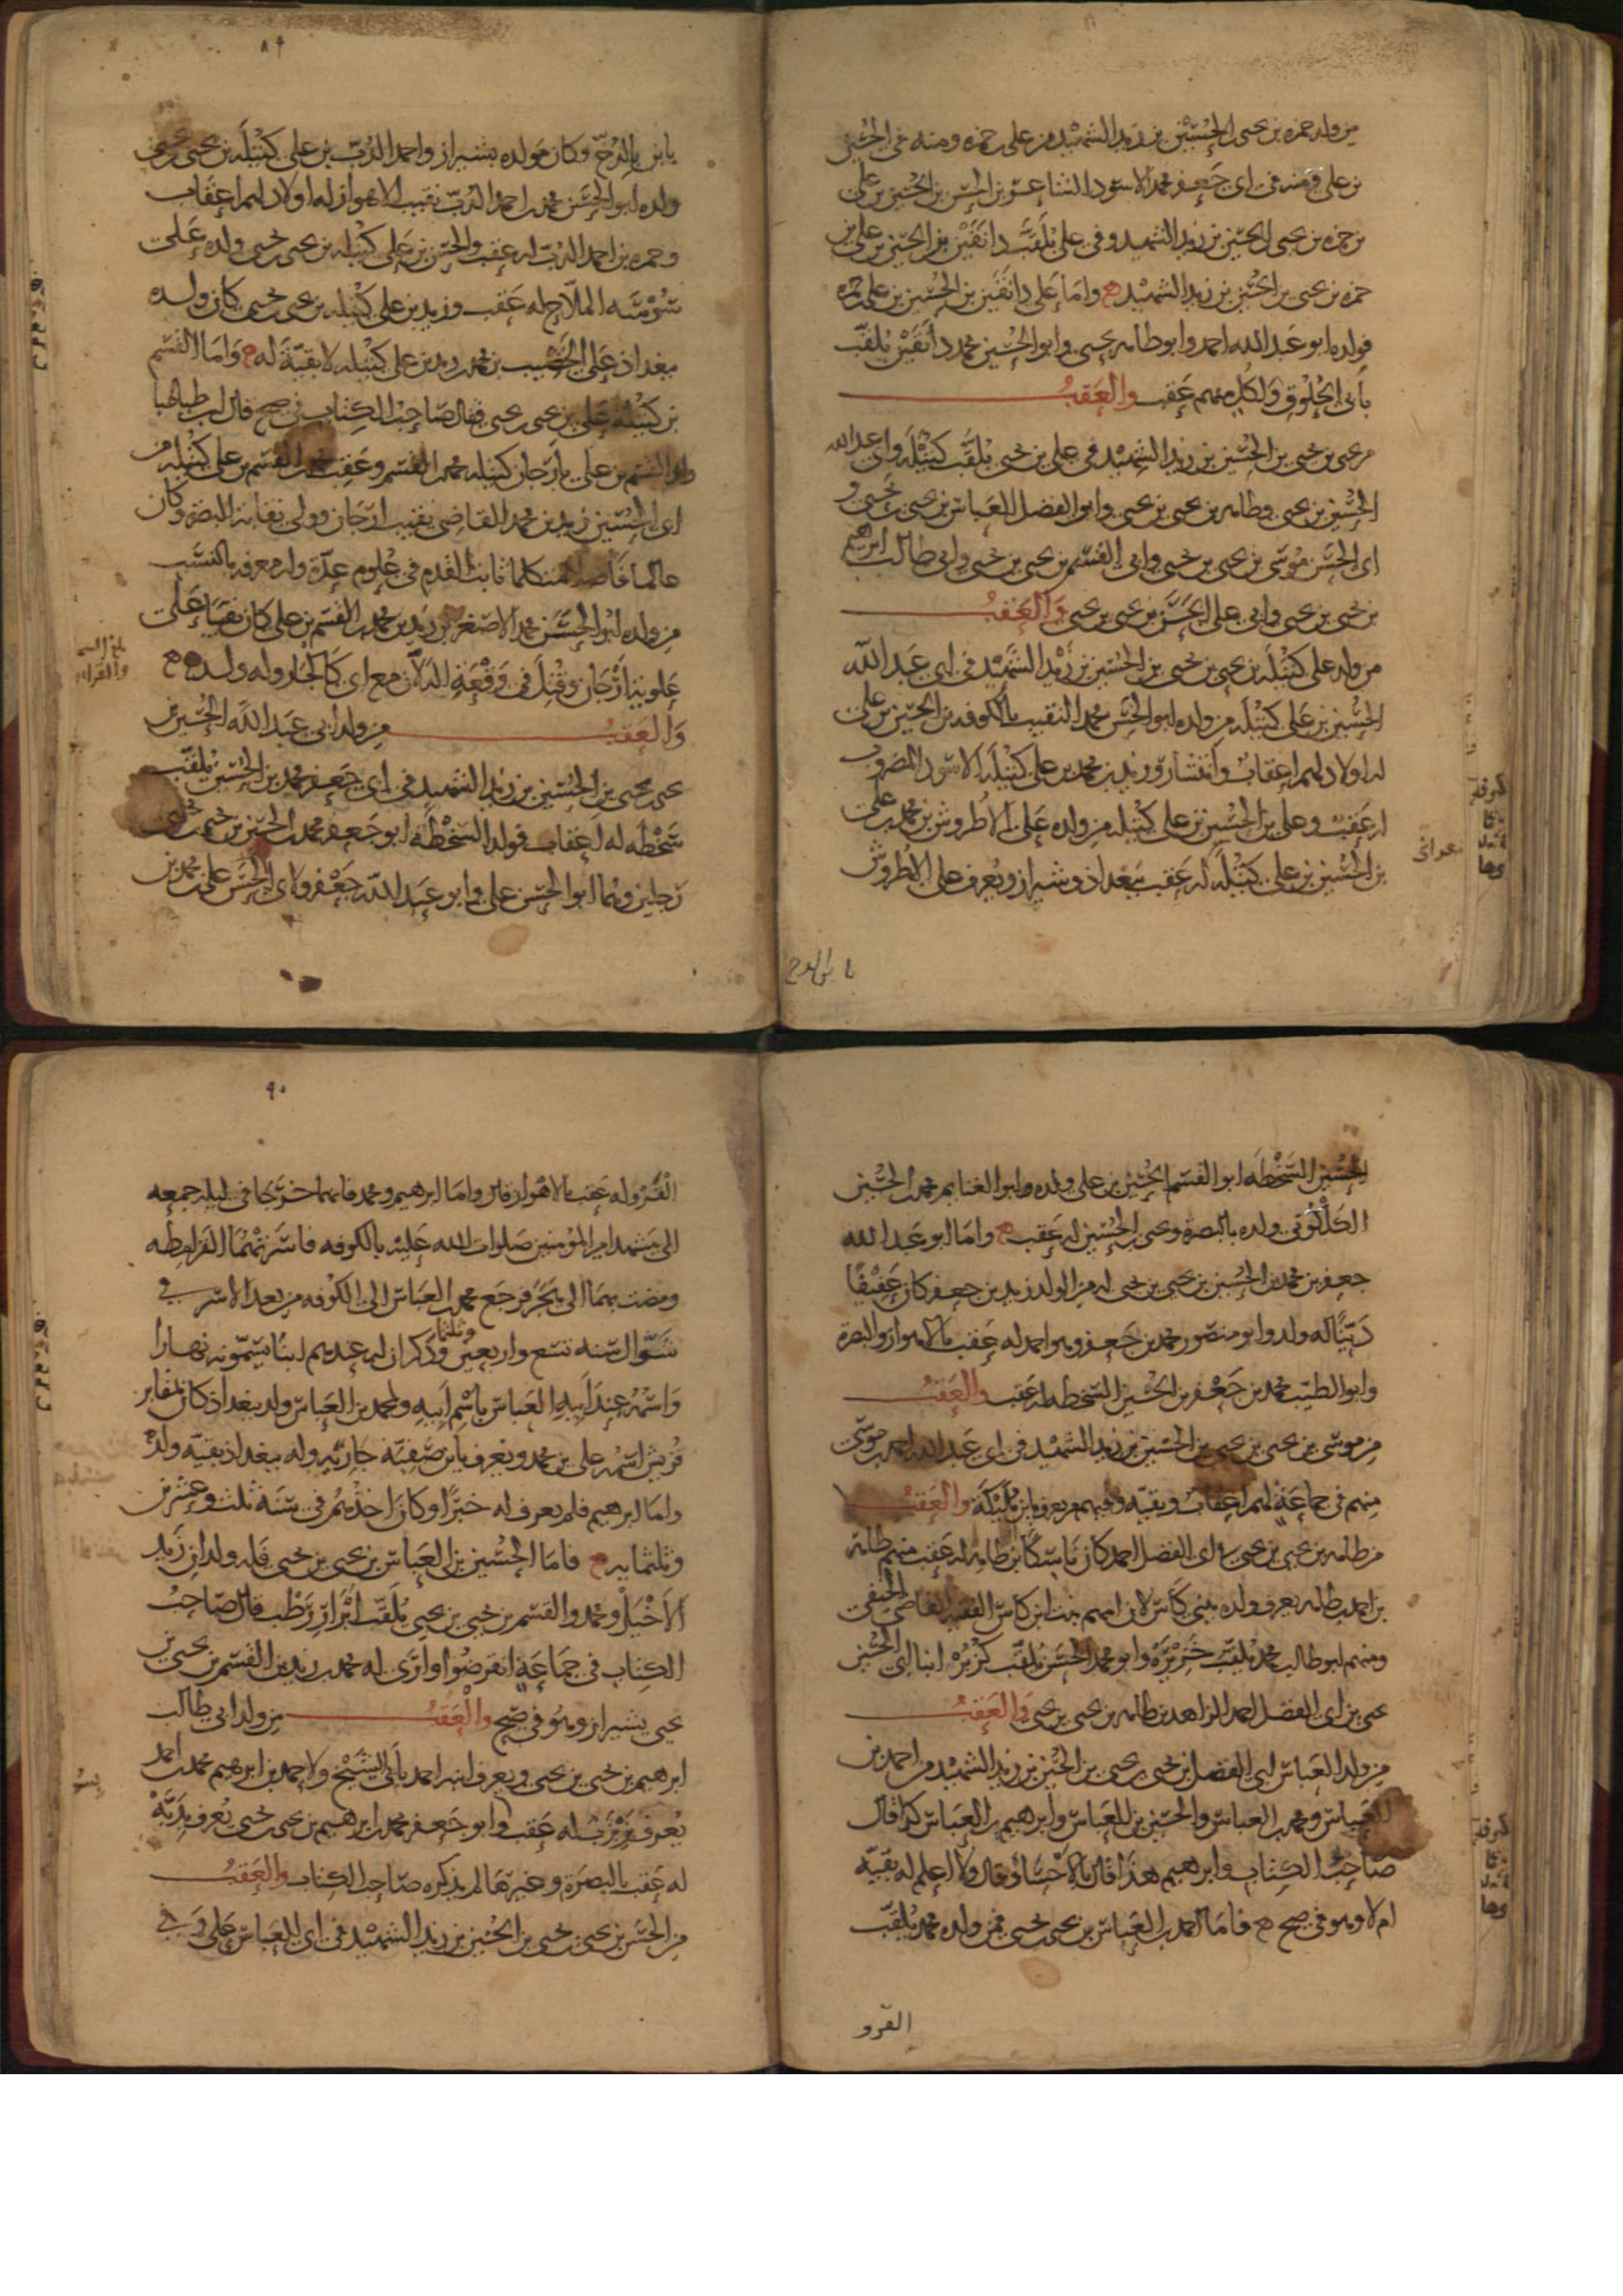 من ولد حمزه بن يحيى بن الحسين بن زيد الشهيد من على بن حمزه ومنه فى الحسين
بن على ومنه فى ابى جعفر محمد الاسود الشاعر بن الحسن بن الحسين بن على
بن حمزه بن يحيى بن الحسين بن زيد الشهيد وفى على يلقب دانقين بن الحسين بن على بن
حمزه بن يحيى بن الحسين بن زيد الشهيد واما على دانقين بن الحسين بن على بن حمزه
فولده ابو عبد الله احمد وابو طاهر يحيى وابو الحسين محمد دانقين يلقب
بابى الجلوق ولكل منهم عقب والعقب
من يحيى بن يحيى بن الحسين بن زيد الشهيد فى على بن يحيى يلقب كتيله وابى عبد الله
الحسين بن يحيى وطاهر بن يحيى بن يحيى وابو الفضل العباس بن يحيى بن يحيى و
ابى الحسن موسى بن يحيى بن يحيى وابى القسم بن يحيى بن يحيى وابى طالب ابرهيم
بن يحيى بن يحيى وابى على الحسن بن يحيى بن يحيى والعقب
من ولد على كتيله بن يحيى بن يحيى بن الحسين بن زيد الشهيد فى ابى عبد الله
الحسين بن على كتيله من ولده ابو الحسن محمد النقيب بالكوفه بن الحسين بن على
له اولاد لهم اعقاب وانتشار وزيد بن محمد بن على كتيله الاسود المضروب
له عقب وعلى بن الحسين بن على كتيله من ولده على الاطروش بن محمد بن على
بن الحسين بن على كتيله له عقب ببغداذ وشيراز ويعرف على الاطروش
بابن الدخ
٨٩
بابن الدخ وكان مولده بشيراز واحمد الدب بن على كتيله بن يحيى بن يحيى
ولده ابو الحسن محمد بن احمد الدب نقيب الاهواز له اولاد لهم اعقاب
وحمزه بن احمد الدب له عقب والحسن بن على كتيله بن يحيى بن يحيى ولده على
شوشه الملاح له عقب وزيد بن على كتيله بن يحيى بن يحيى كان ولده
ببغداذ على الخشيب بن محمد بن زيد بن على كتيله لا بقية له واما القسم
بن كتيله على بن يحيى بن يحيى فقال صاحب الكتاب فى صح قال ابن طباطبا
وابو القسم بن على بارجان كتيله محمد بن القسم وعقب محمد بن القسم بن على كتيله من
ابى الحسين زيد بن محمد القاضى نقيب ارجان وولى نقابة البصره وكان
عالما فاضلا متكلما ثابت القدم فى علوم عدة وله معرفه بالنسب
من ولده ابو الحسن محمد الاصغر بن زيد بن محمد بن القسم بن على كان نقيبا على
علوية ارجان وقتل فى وقعة الدلان مع ابى كاليجار وله ولد
والعقب من ولد ابى عبد الله الحسين بن
يحيى بن يحيى بن الحسين بن زيد الشهيد فى ابى جعفر محمد بن الحسين يلقب
سخطه له اعقاب فولد السخطة ابو جعفر محمد بن الحسين بن يحيى بن يحيى
رجلين وهما ابو الحسن على وابو عبد الله جعفر ولابى الحسن على بن محمد بن
الحسين السخطه ابو القسم الحسين بن على ولده وابو الغنايم محمد بن الحسين
ولده بالبصرة ويحيى بن الحسين له عقب واما ابو عبد الله
جعفر بن محمد بن الحسين بن يحيى بن يحيى له من الولد زيد بن جعفر كان عفيفا
دينا له ولد وابو منصور محمد بن جعفر وهو احمد له عقب بالاهواز والبصرة
وابو الطيب محمد بن جعفر بن الحسين السخطه له عقب والعقب
من موسى بن يحيى بن يحيى بن الحسين بن زيد الشهيد فى ابى عبد الله احمد بن موسى
منهم فى جماعة لهم اعقاب وبقيه ومنهم من يعرف بابن مليكة والعقب
من طاهر بن يحيى بن يحيى ابى الفضل احمد كان ناسكا بن طاهر له عقب منهم طاهر
بن احمد بن طاهر يعرف ولده ببنى كاس لان امهم بنت ابن كاس الفقيه القاضى الحنفى
ومنهم ابو طالب محمد يلقب خزيزه وابو محمد الحسن يلقب كزبره ابنا ابى الحسين
يحيى بن ابى الفضل احمد الزاهد بن طاهر بن يحيى بن يحيى والعقب
من ولد العباس ابى الفضل بن يحيى بن يحيى بن الحسين بن زيد الشهيد من احمد بن
العباس ومحمد بن العباس والحسين بن العباس وابرهيم بن العباس كذا قال
صاحب الكتاب وابرهيم هذا قال بالاحساء وقال ولا اعلم له بقية
ام لا وهو فى صح فاما احمد بن العباس بن يحيى بن يحيى فمن ولده محمد يلقب
القرو
٩٠
القرو له عقب بالاهواز قال واما ابرهيم ومحمد فانهما خرجا فى ليله جمعه
الى مشهد امير المؤمنين صلوات الله عليه بالكوفه فاسرتهما القرامطه
ومضت بهما الى هجر فرجع محمد بن العباس الى الكوفه من بعد الاسر فى
شوال سنه تسع واربعين وثلثما وذكر ان له عندهم ابنا يسمونه نهارا
واسمه عند ابيه العباس باسم ابيه ولمحمد بن العباس ولد ببغداذ كان بمقابر
قريش اسمه على بن محمد ويعرف بابن صفية جاريه وله ببغداذ بقيه ولده
واما ابرهيم فلم يعرف له خبرا وكان اخذهم فى سنة ثلث وعشرين
وثلثمايه فاما الحسين بن العباس بن يحيى بن يحيى فله ولدان زيد
الاخيل ومحمد والقسم بن يحيى بن يحيى يلقب ابزار رطب قال صاحب
الكتاب فى جماعة انقرضوا وارى له محمد بن زيد بن القسم بن يحيى بن
يحيى بشيراز وهو فى صح والعقب من ولد ابى طالب
ابرهيم بن يحيى بن يحيى ويعرف ابنه احمد بابى الشيخ ولاحمد بن ابرهيم محمد بن احمد
له عقب وابو جعفر محمد بن ابرهيم بن يحيى بن يحيى يعرف
له عقب بالبصرة وغيرها لم يذكره صاحب الكتاب والعقب
من الحسن بن يحيى بن يحيى بن الحسين بن زيد الشهيد فى ابى العباس على وفى